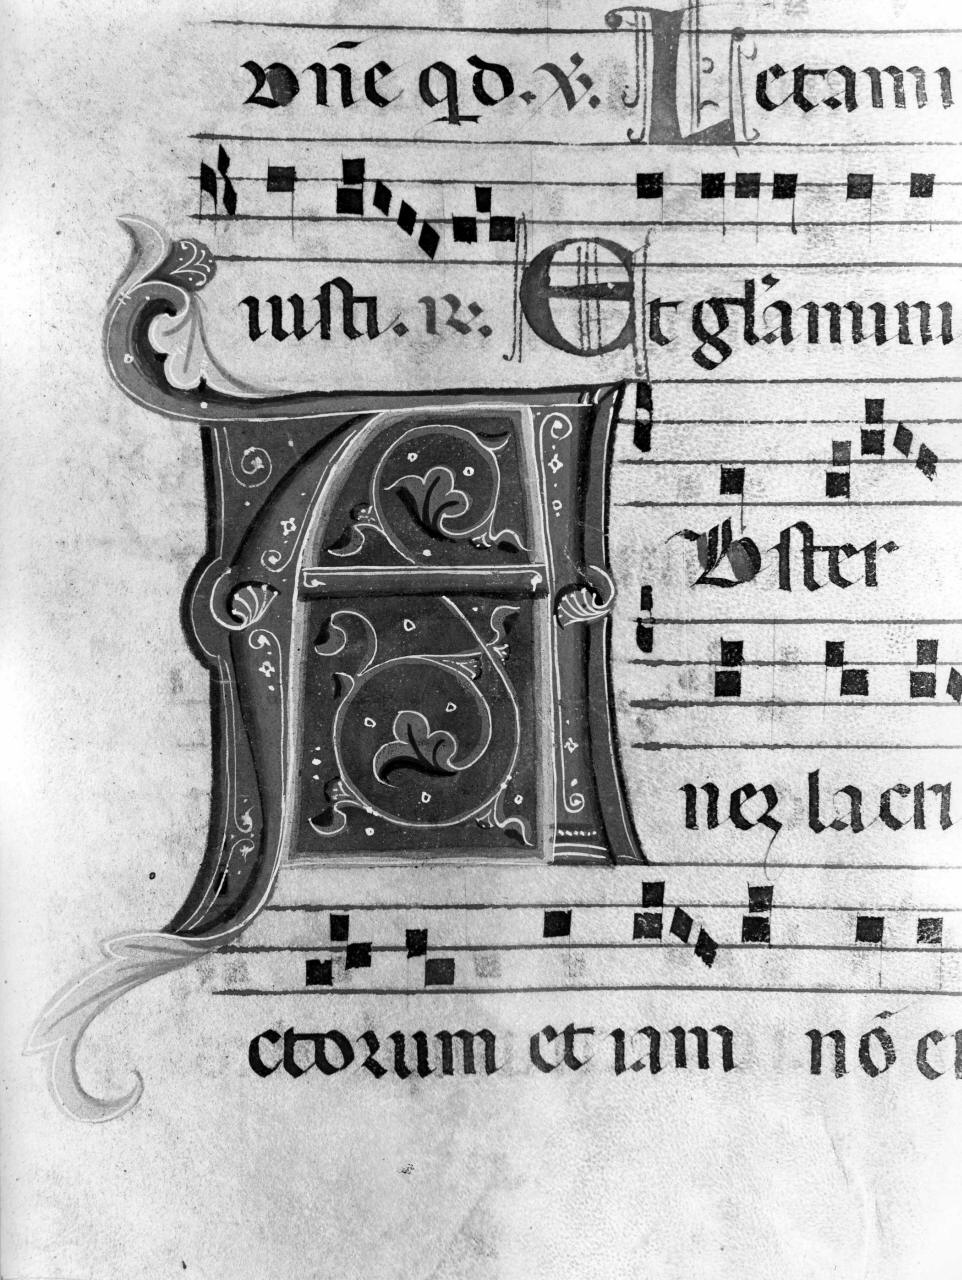 dn̄e qd. ℣. Letami
iusti. ℟. Et gl̃amini
A
bster
nez lacri
ctorum et iam nō er